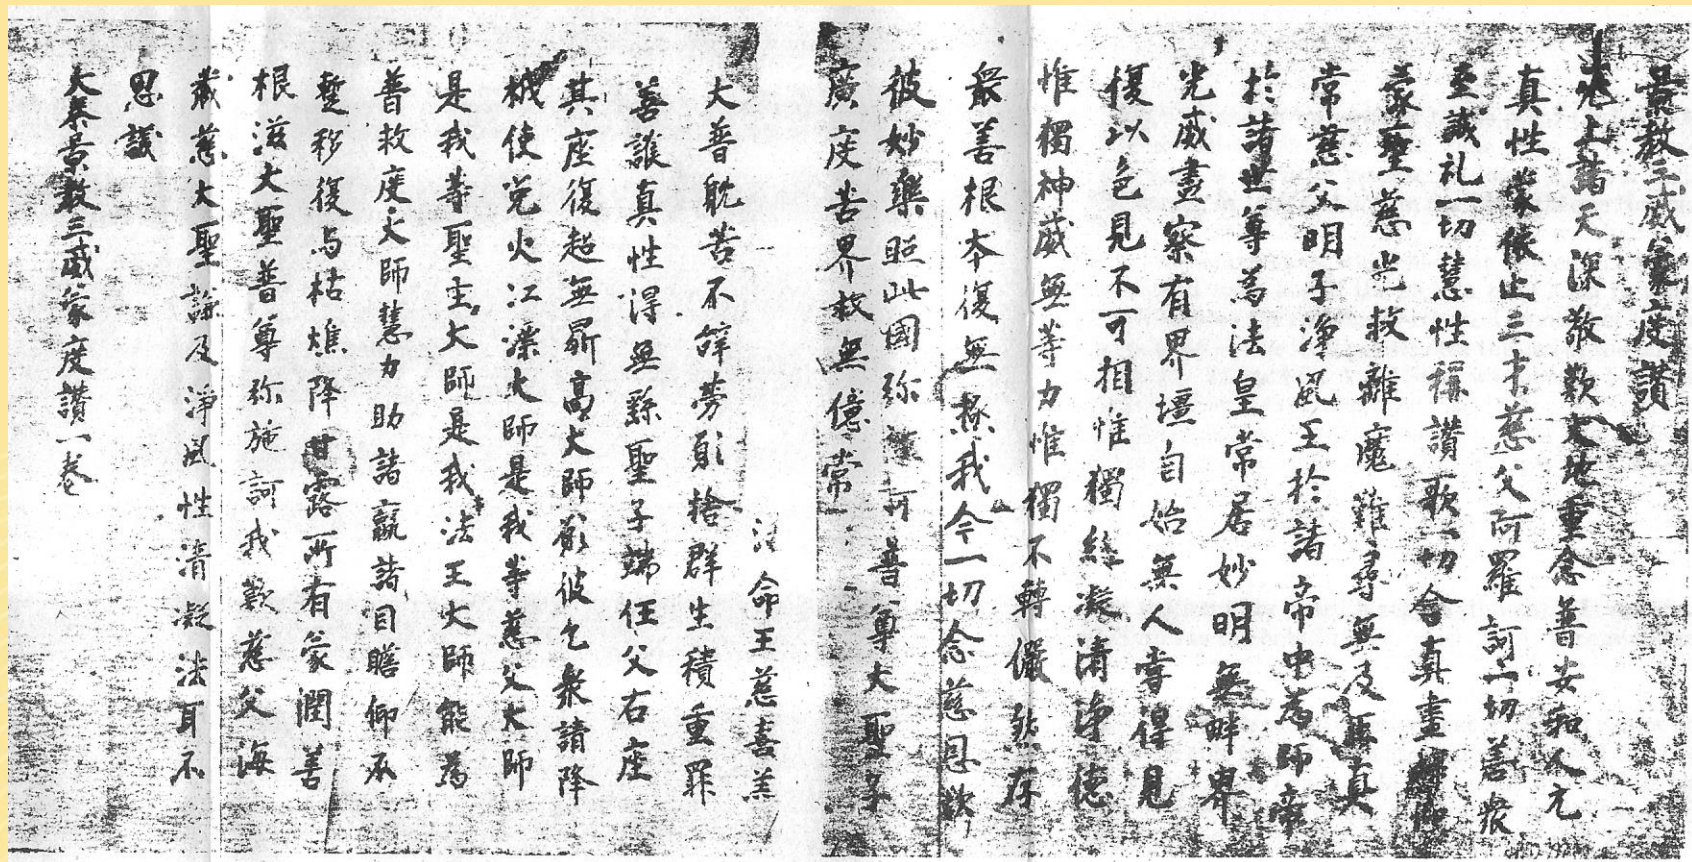 景教三威蒙度讚
無上諸天深敬歎大地重念普安和人元
真性蒙依止三才慈父阿羅訶一切善衆
至誠礼一切慧性稱讚歌一切含真盡歸仰
蒙聖慈光救離魔難尋無及正真
常慈父明子淨風王於諸帝中為師帝
於諸世尊為法皇常居妙明無畔界
光威盡察有界壃自始無人嘗得見
復以色見不可相惟獨絶凝清淨德
惟獨神威無等力惟獨不轉儼然存
衆善根本復無極我今一切念慈恩歎
彼妙樂照此國弥施訶普尊大聖子
廣度苦界救無億常
活命王慈喜羔
大普耽苦不辞勞願捨群生積重罪
善護真性得無繇聖子端任父右座
其座復超無鼎高大師願彼乞衆請降
栰使免火江漂大師是我等慈父大師
是我等聖主大師是我法王大師能為
普救度大師慧力助諸羸諸目瞻仰不
蹔移復与枯燋降甘露所有蒙潤善
根滋大聖普尊弥施訶我歎慈父海
藏慈大聖謙及淨風性清凝法耳不
思議
大秦景教三威蒙度讚一卷